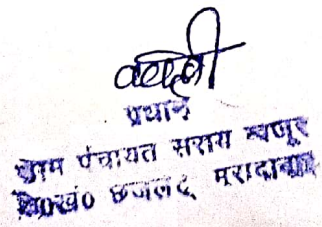 प्रधान
ग्राम पंचायत सराय खजूर
वि०खं० छजलैट मुरादाबाद